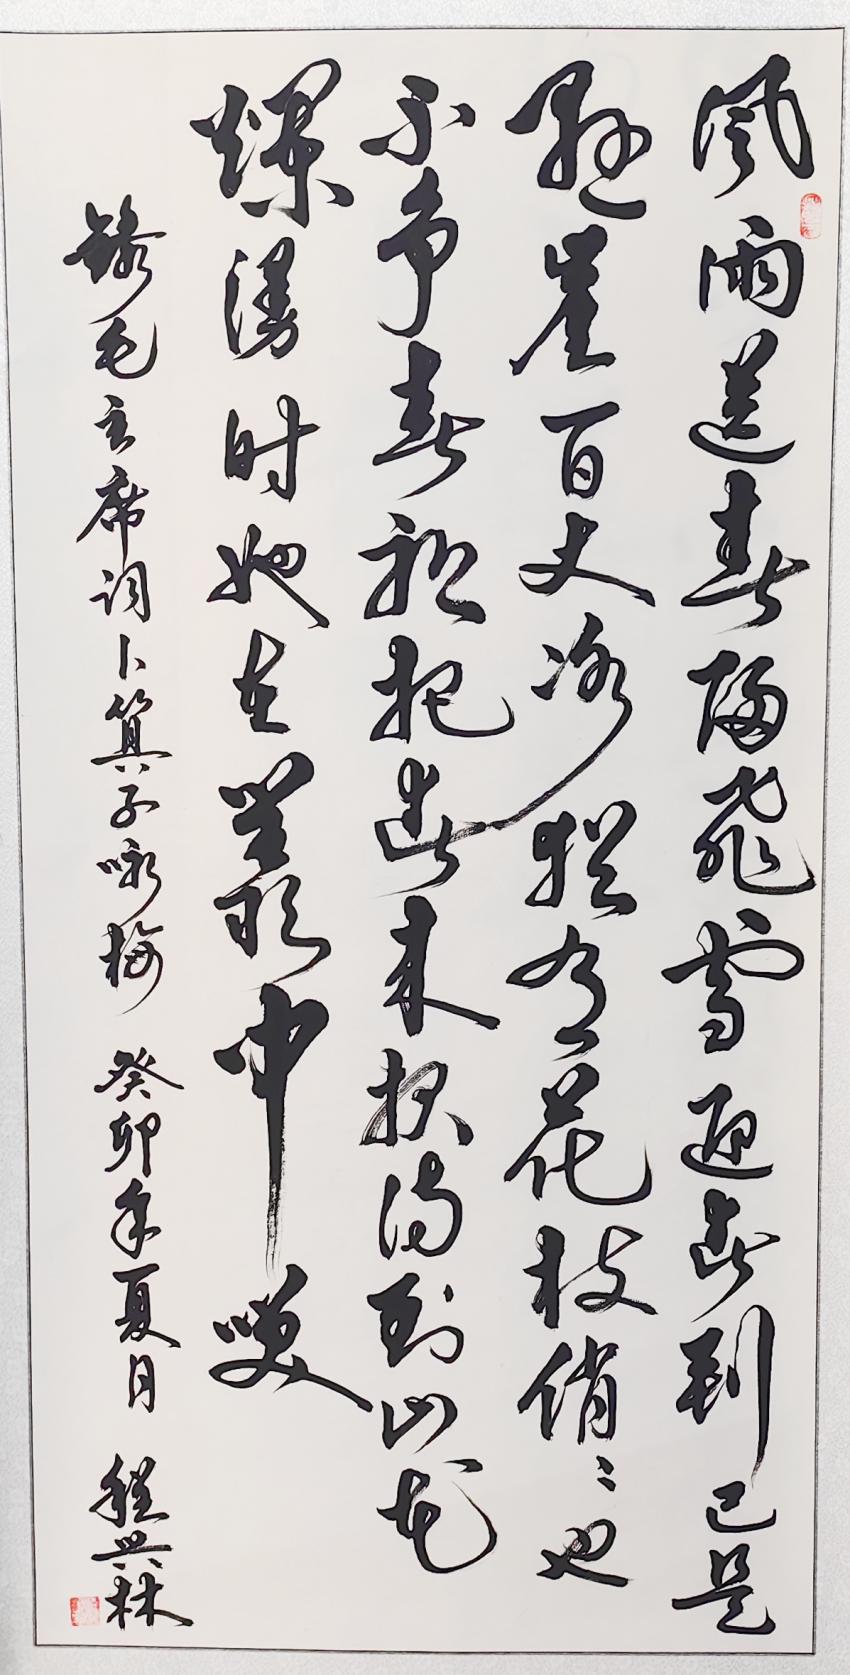 風雨送春歸飛雪迎春到已是
懸崖百丈冰猶有花枝俏〻也
不争春祇把春来报待到山花
爛漫时她在叢中咲
録毛主席词卜算子咏梅 癸卯年夏月 程兴林